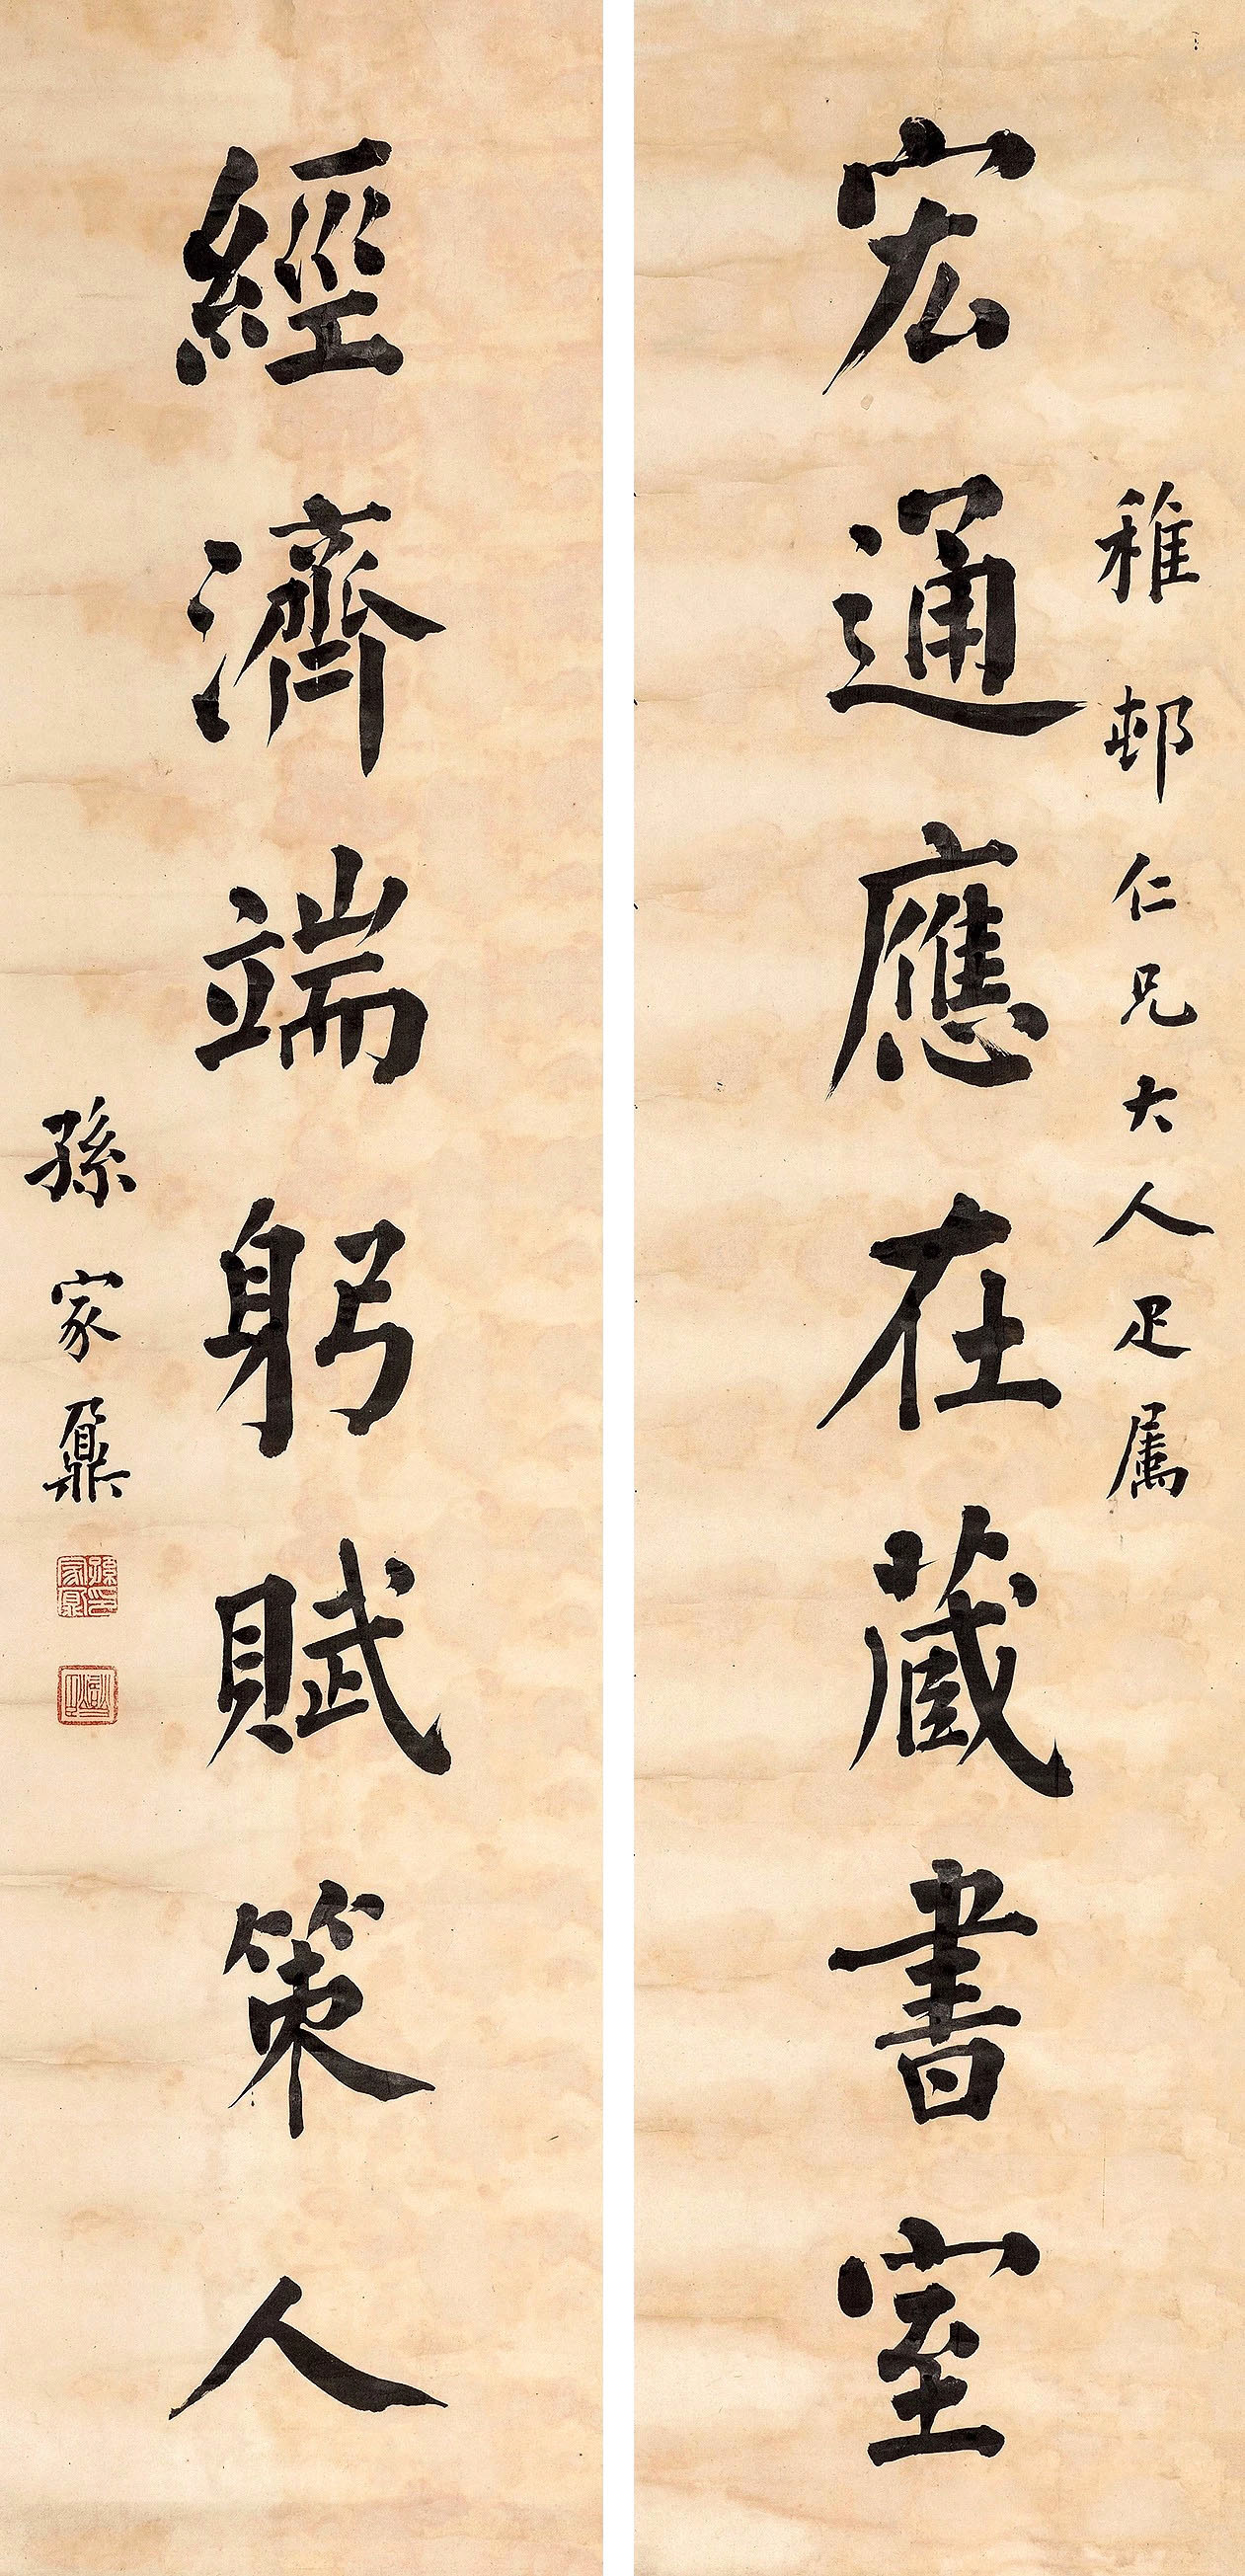 稚邨仁兄大人疋属
宏通應在藏書室
經濟端躬賦策人
孫家鼐
孫家鼐印